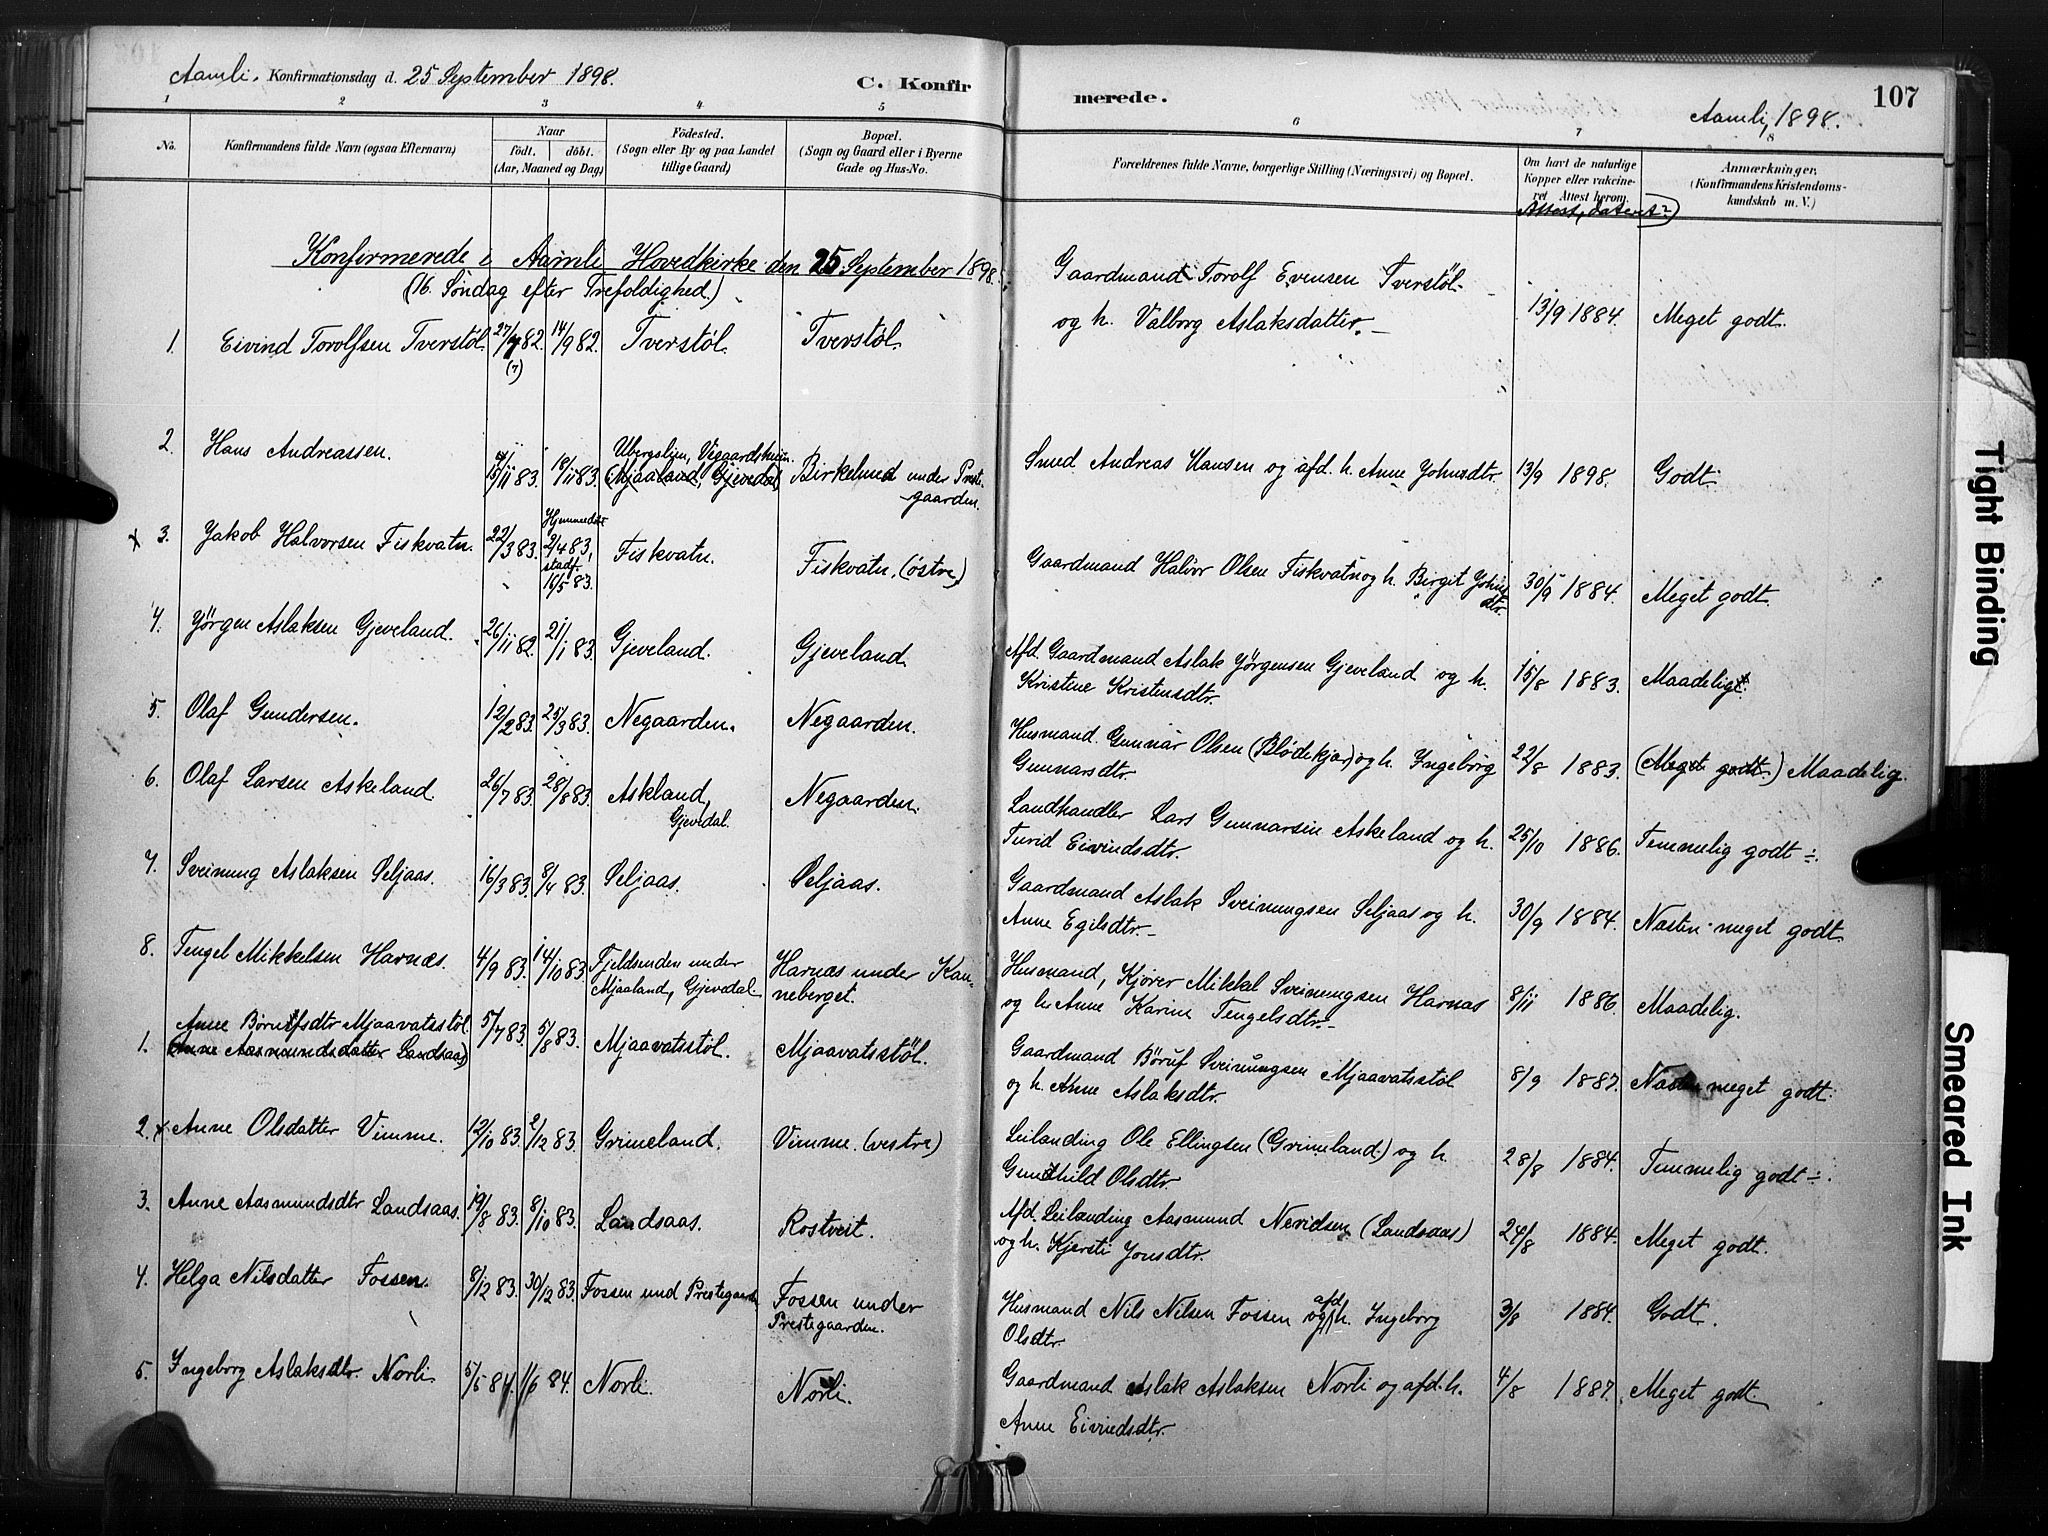 Aamli. Konfirmationsdag d. 25 September 1898.
C. Konfirmerede.
107
Aamli, 1898.
1 2 3 4 5 6 7 8
No.
Konfirmandens fulde Navn (ogsaa Efternavn)
Naar
födt. döbt.
(Aar, Maaned og Dag)
Födested.
(Sogn eller By og paa Landet
tillige Gaard)
Bopæl.
(Sogn og Gaard eller i Byerne
Gade og Hus-No.
Forældrenes fulde Navne, borgerlige Stilling (Næringsvei) og Bopæl.
Om havt de naturlige
Kopper eller vakcine-
ret Attest herom.
Attest, datert?
Anmærkninger.
(Konfirmandens Kristendoms-
kundskab m. V.)
Konfirmerede i Aamli Hovedkirke den 25 September 1898.
(16. Söndag efter Trefoldighed.)
1. Eivind Torolfsen Tverstöl. 27/7 82. (7) 14/9 82. Tverstöl. Tverstöl. Gaardmand Torolf Evensen Tverstöl
og h. Valborg Aslaksdatter. 13/9 1884. Meget godt.
2. Hans Andreassen. 15/11 83. 18/11 83. Vegaardsheien. (Mjaaland, Gjevedal) Birkelund under Preste-
gaarden. Smed Andreas Hansen og afd. h. Anne Johnsdtr. 13/9 1898. Godt.
x 3. Jakob Halvorsen Fiskvatn. 22/3 83. Hjemmedöbt 2/4 83, stadf. 16/5 83. Fiskvatn. Fiskvatn. (östre) Gaardmand Halvor Olsen Fiskvatn og h. Birgit Johns-
dtr. 30/9 1884. Meget godt.
4. Jörgen Aslaksen Gjeveland. 26/11 82. 21/1 83. Gjeveland. Gjeveland. Afd. Gaardmand Aslak Jörgensen Gjeveland og h.
Kristine Kristensdtr. 15/8 1883. Maadeligt.
5. Olaf Gundersen. 12/2 83. 25/3 83. Negaarden. Negaarden. Husmand Gunnar Olsen (Blödekjær) og h. Ingeborg
Gunnarsdtr. 22/8 1883. (Meget godt.) Maadelig.
6. Olaf Larsen Askeland. 26/7 83. 28/8 83. Askland,
Gjevedal. Negaarden. Landhandler Lars Gunnarsen Askeland og h.
Turid Eivindsdtr. 25/10 1886. Temmelig godt ÷.
7. Sveinung Aslaksen Seljaas. 16/3 83. 8/4 83. Seljaas. Seljaas. Gaardmand Aslak Sveinungsen Seljaas og h.
Anne Egilsdtr. 30/9 1884. Næsten meget godt.
8. Tengel Mikkelsen Harnæs. 4/9 83. 14/10 83. Fjeldsenden under
Mjaaland, Gjevedal. Harnæs under Kan-
neberget. Husmand, Kjörer Mikkel Sveinungsen Harnæs
og h. Anne Karine Tengelsdtr. 8/11 1886. Maadelig.
Anne Börufsdtr Mjaavatsstöl
1. (Anne Aasmundsdatter Landsaas) 5/7 83. 5/8 83. Mjaavatsstöl. Mjaavatsstöl. Gaardmand Böruf Sveinungsen Mjaavatsstöl
og h. Anne Aslaksdtr. 8/9 1887. Næsten meget godt.
2. x Anne Olsdatter Vimme. 12/10 83. 2/12 83. Grimeland. Vimme. (vestre) Leilænding Ole Ellingsen (Grimeland) og h.
Gunhild Olsdtr 28/8 1884. Temmelig godt ÷.
3. Anne Aasmundsdtr Landsaas. 19/8 83. 8/10 83. Landsaas. Rostveit. Afd. Leilænding Aasmund Nevidsen (Landsaas)
og h. Kjersti Jonsdtr. 24/8 1884. Meget godt.
4. Helga Nilsdatter Fossen. 8/12 83. 30/12 83. Fossen und Prestegaarden Fossen under
Prestegaarden. Husmand Nils Nilsen Fossen og afd. h. Ingeborg
Olsdtr. 3/8 1884. Godt.
5. Ingeborg Aslaksdtr. Norli. 5/5 84. 1/6 84. Norli. Norli. Gaardmand Aslak Aslaksen Norli og afd. h.
Anne Eivindsdtr. 4/8 1887. Meget godt.
Tight Binding
Smeared Ink